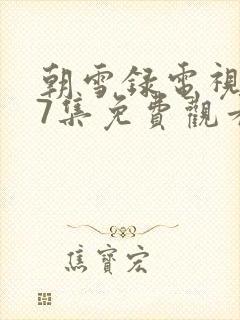 朝雪録電視
7集免費觀看
焦寶宏